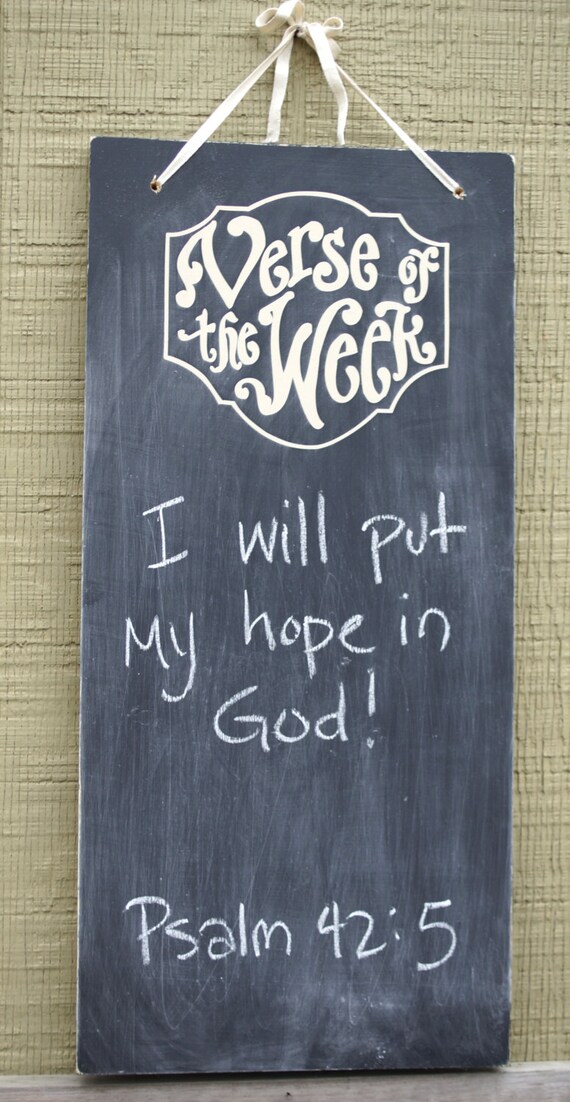 Verse of
the Week
I will put
My hope in
God!
Psalm 42:5